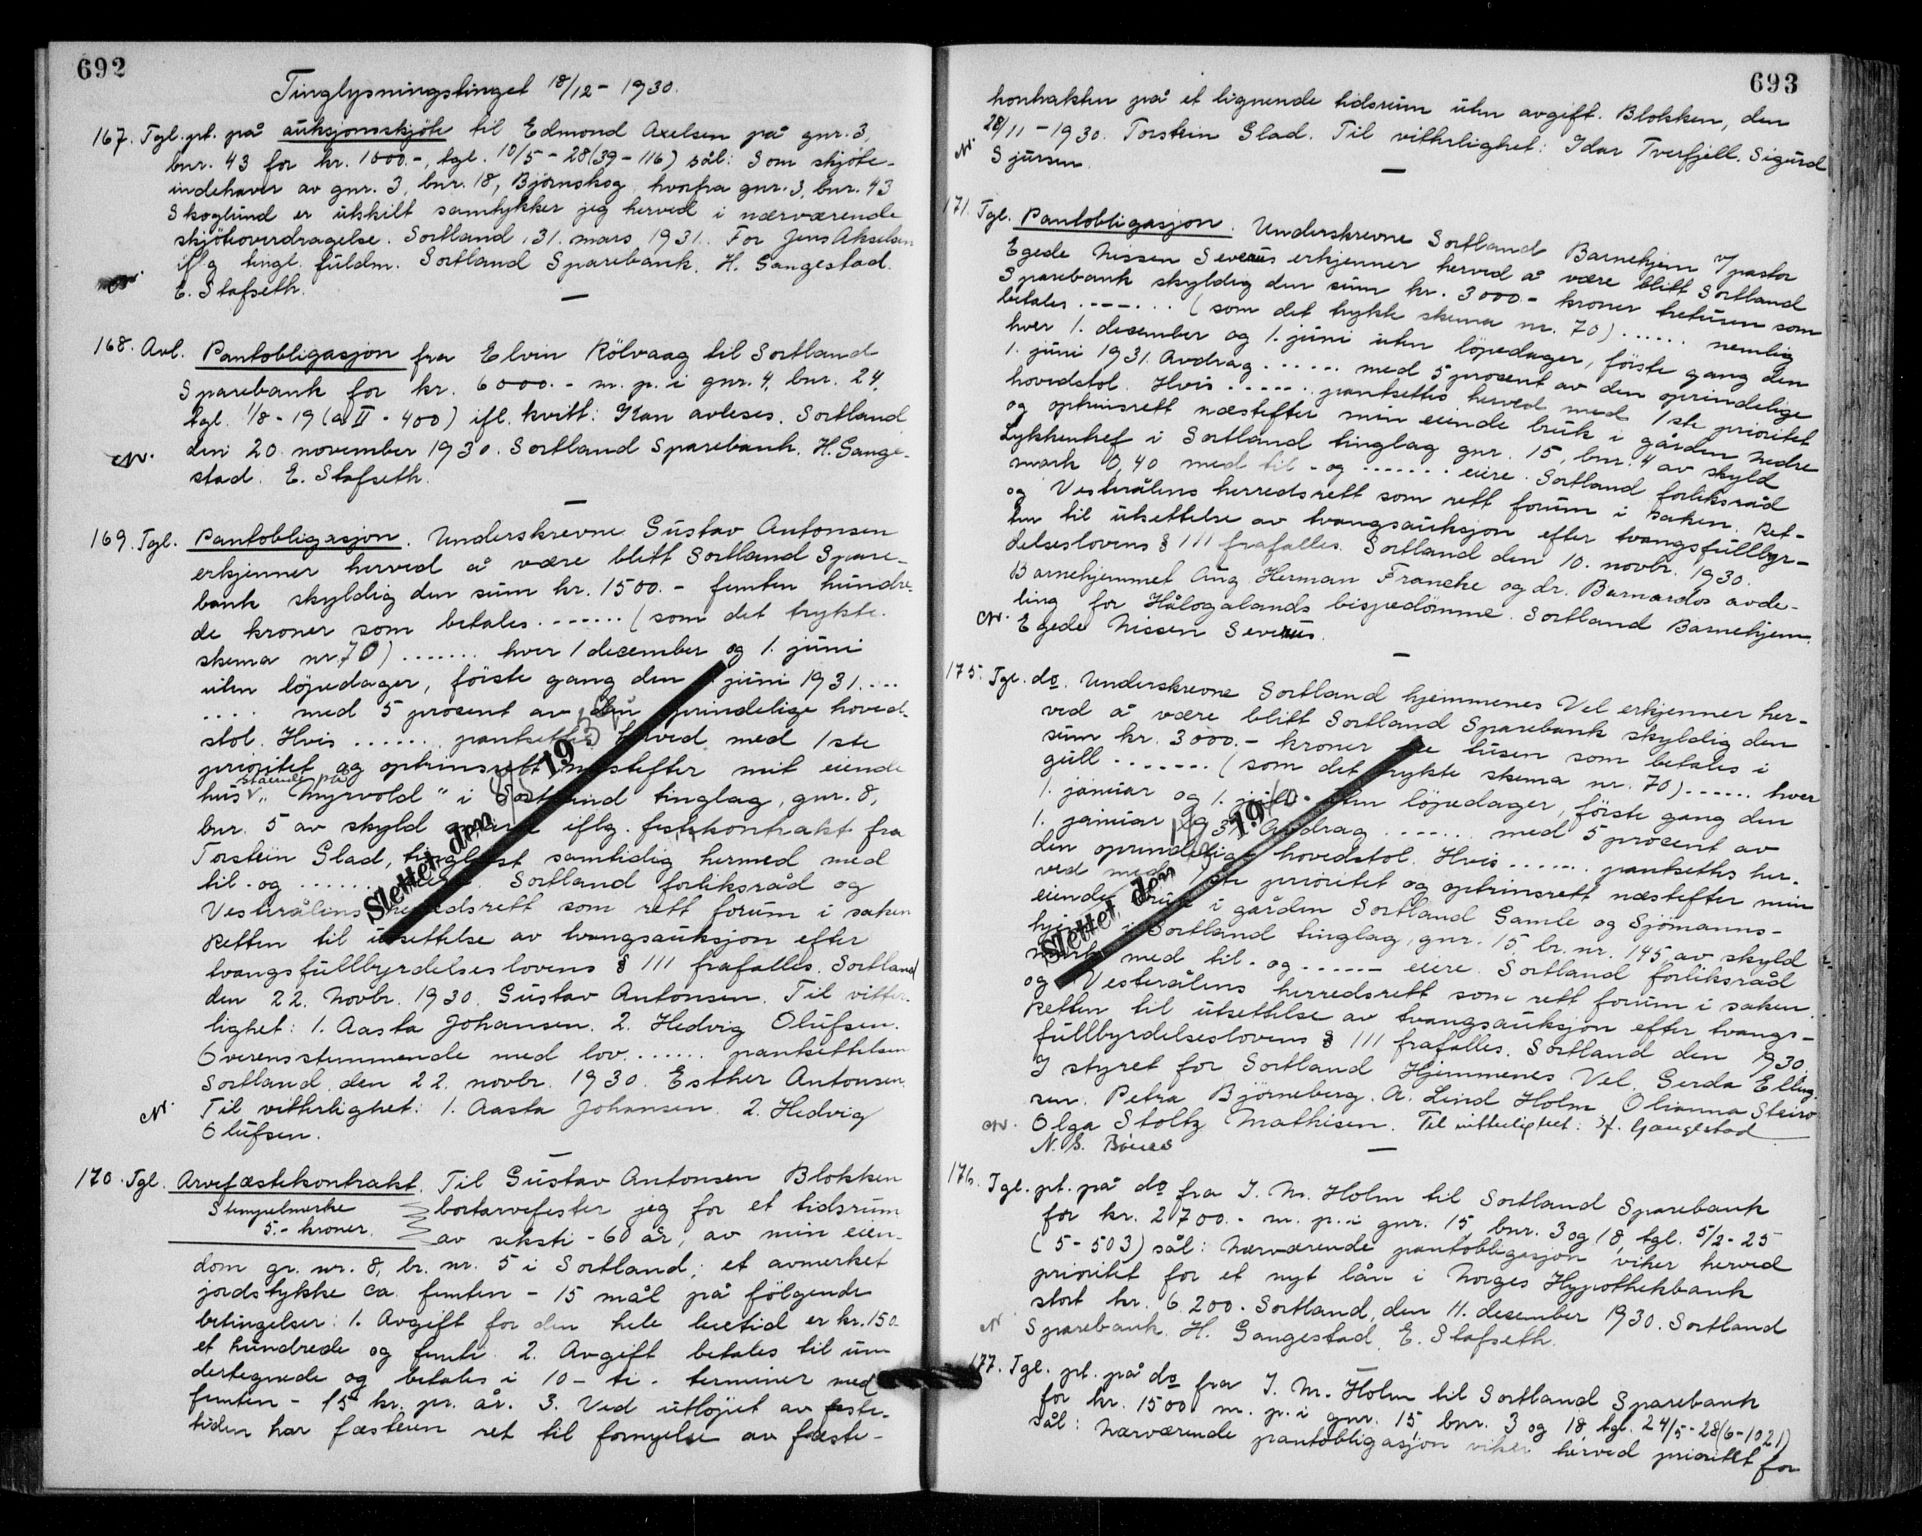 692
Tinglysningstinget 18/12 - 1930.
167. Tgl. pt. på auksjonsskjöte til Edmond Axelsen på gnr. 3,
bnr. 43 for kr. 1000.-, tgl. 10/5 - 28 (39 - 116) sål: Som skjöte-
indehaver av gnr. 3, bnr. 18, Björnskog, hvorfra gnr. 3, bnr. 43
Skoglund er utskilt samtykker jeg herved i nærværende
skjöteoverdragelse. Sortland, 31. mars 1931. For Jens Akselsen
tingl. fuldm. Sortland Sparebank. H. Gangestad.
E. Stafseth.
168. Avl. Pantobligasjon fra Elvin Rölvaag til Sortland
Sparebank for kr. 6000.- m. p. i gnr. 4, bnr. 24,
tgl. 1/8 - 19 (a II - 400) ifl. kvitt: Kan avleses. Sortland
den 20. november 1930. Sortland Sparebank. H. Gange-
stad. E. Stafseth.
169. Tgl. Pantobligasjon. Underskrevne Gustav Antonsen
erkjenner herved å være blitt Sortland Spare-
bank skyldig den sum kr. 1500.- femten hundre-
de kroner som betales ....... (som det trykte
skema nr. 70) ....... hver 1 december og 1. juni
uten löpedager, förste gang den 1 juni 1931 ....
.... med 5 prosent av den oprindelige hoved-
stol. Hvis ....... pantsettes herved med 1ste
prioritet og optrinsrett næstefter mit eiende
hus stående på "Myrvold" i Sortland tinglag, gnr. 8,
bnr. 5 av skyld mark iflg. festekontrakt fra
Torstein Glad, tinglyst samtidig hermed med
til- og ....... eiere. Sortland forliksråd og
Vesterålens herredsrett som rett forum i saken
Retten til utsettelse av tvangsauksjon efter
tvangsfullbyrdelseslovens § 111 frafalles. Sortland
den 22. novbr. 1930. Gustav Antonsen. Til vitter-
lighet: 1. Aasta Johansen. 2. Hedvig Olufsen.
Overensstemmende med lov ...... pantsettelsen
Sortland, den 22. novbr. 1930. Esther Antonsen.
Til vitterlighet: 1. Aasta Johansen. 2. Hedvig
Olufsen.
Slettet den 19
170. Tgl. Arvefæstekontrakt. Til Gustav Antonsen Blokken
Stempelmerke
5.- kroner.
bortarvefester jeg for et tidsrum
av seksti - 60 år, av min eien-
dom gr. nr. 8, br. nr. 5 i Sortland, et avmerket
jordstykke ca. femten - 15 mål på fölgende
betingelser: 1. Avgift for den hele leietid er kr. 150
et hundrede og femti. 2. Avgift betales til un
dertegnede og betales i 10 - ti - terminer med
femten - 15 kr. pr. år. 3. Ved utlöpet av feste-
tiden har fæsteren ret til fornyelse av fæste-
693
kontrakten på et lignende tidsrum uten avgift. Blokken, den
28/11 - 1930. Torstein Glad. Til vitterlighet: Idar Tverfjell. Sigurd
Sjursen.
171. Tgl. Pantobligasjon. Underskrevne Sortland Barnehjem v/ pastor
Egede Nissen Severus erkjenner herved å være blitt Sortland
Sparebank skyldig den sum kr. 3000.- kroner tretusen som
betales ....... (som det trykte skema nr. 70) ...... nemlig
hver 1. december og 1. juni uten löpedager, förste gang den
1. juni 1931. Avdrag ...... med 5 prosent av den oprindelige
hovedstol. Hvis ....... pantsettes herved med 1ste prioritet
og optrinsrett næstefter min eiende bruk i gården Nedre
Lykkentref i Sortland tinglag gnr. 15, bnr. 4 av skyld
mark 0,40 med til- og ....... eiere. Sortland forliksråd
og Vesterålens herredsrett som rett forum i saken. Ret-
ten til utsettelse av tvangsauksjon efter tvangsfullbyr-
delseslovens § 111 frafalles. Sortland den 10. novbr. 1930.
Barnehjemmet Aug Herman Francke og dr. Barnardos avde-
ling for Hålogalands bispedömme. Sortland Barnehjem.
Egede Nissen Severus.
175. Tgl. do. Underskrevne Sortland hjemmenes Vel erkjenner her-
ved å være blitt Sortland Sparebank skyldig den
sum kr. 3000.- kroner tre tusen som betales i
gull ....... (som det trykte skema nr. 70) ...... hver
1. januar og 1. juli uten löpedager, förste gang den
1. januar Avdrag ...... med 5 prosent av
den oprindelige hovedstol. Hvis ...... pantsettes her-
ved med 1ste prioritet og optrinsrett næstefter min
eiende bruk i gården Sortland Gamle og Sjömanns-
hjem i Sortland tinglag, gnr. 15 br. nr. 145, av skyld
mark med til- og ...... eiere. Sortland forliksråd
og Vesterålens herredsrett som rett forum i saken.
Retten til utsettelse av tvangsauksjon efter tvangs-
fullbyrdelseslovens § 111 frafalles. Sortland den 1930.
I styret for Sortland Hjemmenes Vel. Gerda Elling-
sen. Petra Björneberg. A. Lind Holm Olianna Steiro
Olga Stoltz Mathisen. Til vitterlighet: H. Gangestad
Slettet den 19
176. Tgl. pt. på do fra I. M. Holm til Sortland Sparebank
for kr. 2700.- m. p. i gnr. 15, bnr. 3 og 18, tgl. 5/2 - 25
(5 - 503) sål: Nærværende pantobligasjon viker herved
prioritet for et nyt lån i Norges Hypothekbank
stort kr. 6.200. Sortland, den 11. desember 1930. Sortland
Sparebank. H. Gangestad. E. Stafseth.
177. Tgl. pt. på do fra I. M. Holm til Sortland Sparebank
for kr. 1500 m. p. i gnr. 15, bnr. 3 og 18, tgl. 24/5 - 28 (6 - 1021)
sål: Nærværende pantobligasjon viker herved prioritet for